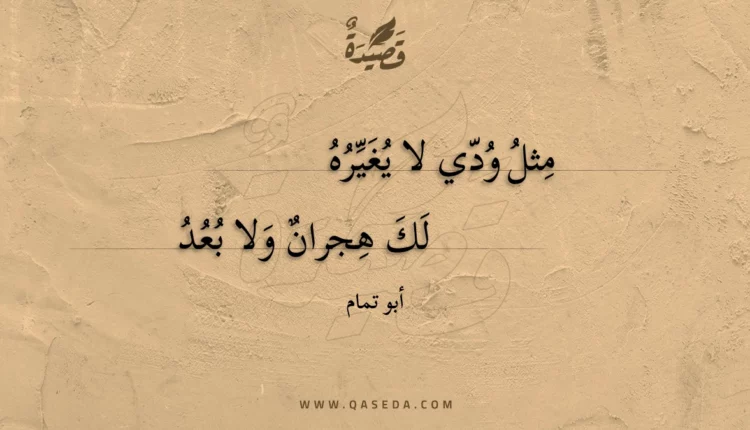 قَصِيدَةٌ
مِثلُ وُدّي لا يُغَيِّرُهُ
لَكَ هِجرانٌ وَلا بُعُدُ
أبو تمام
WWW.QASEDA.COM